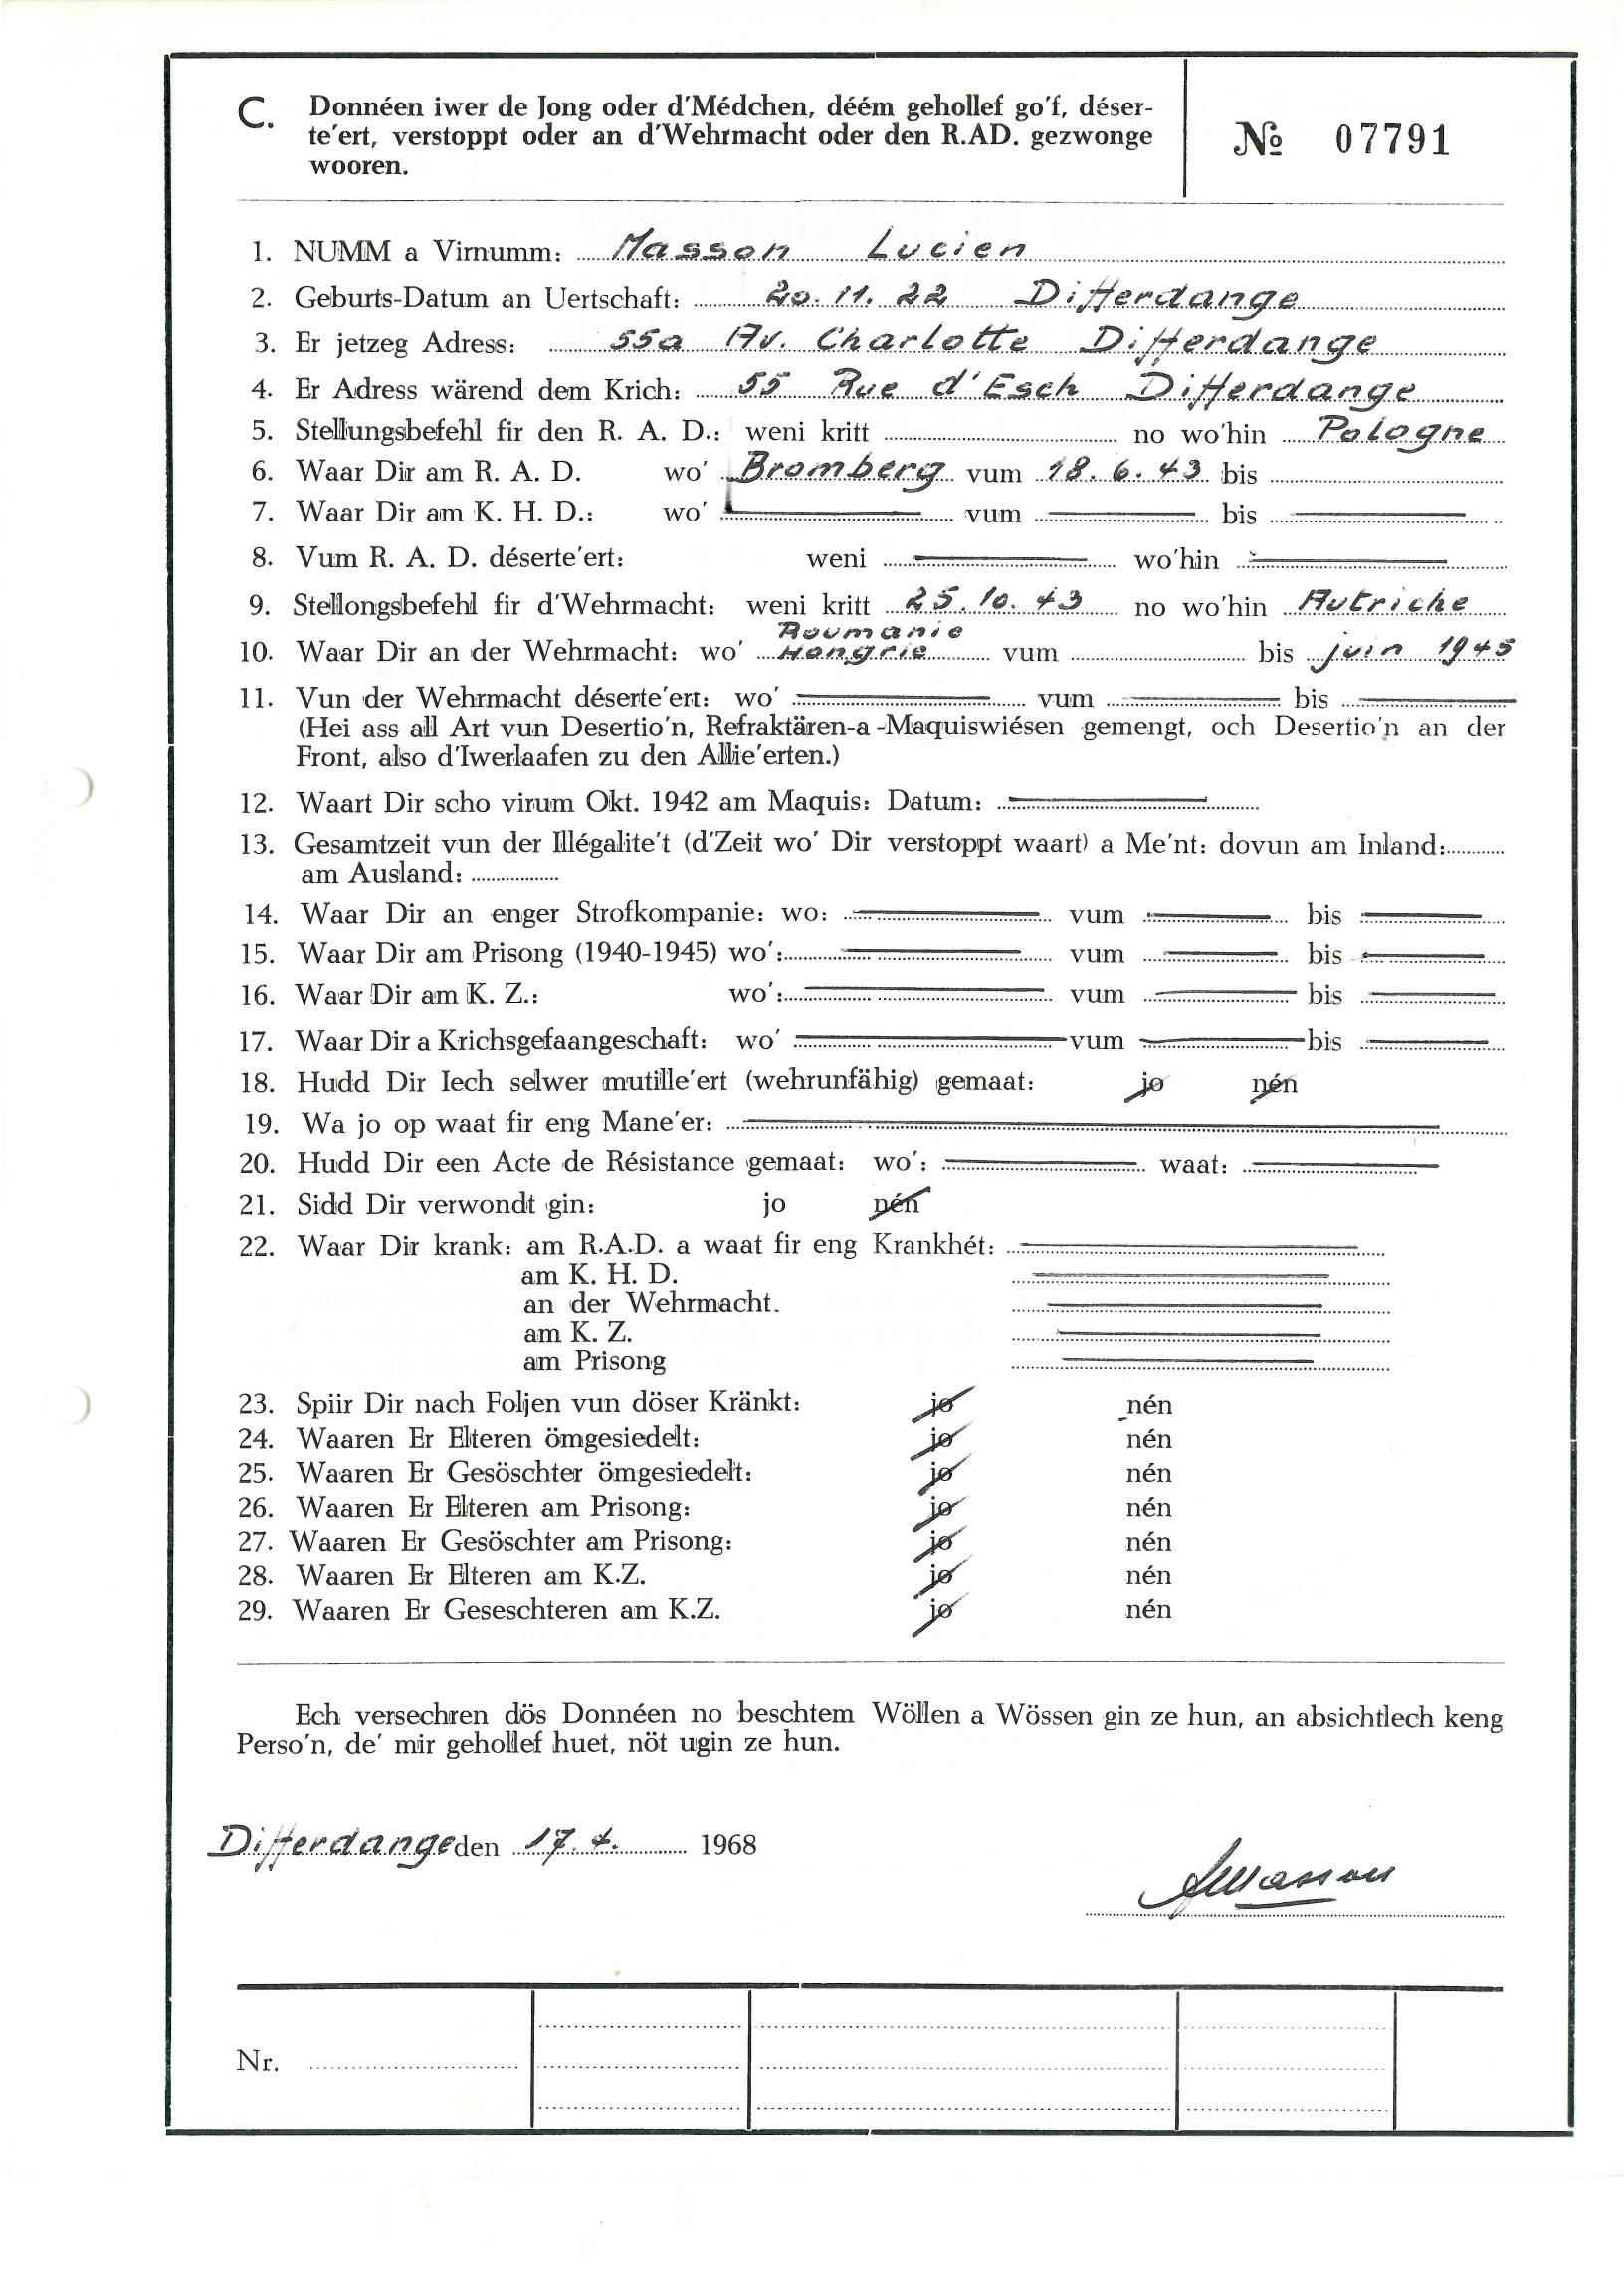 C. Donnéen iwer de Jong oder d'Médchen, déém gehollef go'f, déser-
te'ert, verstoppt oder an d'Wehrmacht oder den R.AD. gezwonge
wooren.
№ 07791
1. NUMM a Virnumm: Masson Lucien
2. Geburts-Datum an Uertschaft: 20.11.22 Differdange
3. Er jetzeg Adress: 55a Av. Charlotte Differdange
4. Er Adress wärend dem Krich: 55 Rue d'Esch Differdange
5. Stellungsbefehl fir den R. A. D.: weni kritt no wo'hin Pologne
6. Waar Dir am R. A. D. wo' Bromberg vum 18.6.43 bis
7. Waar Dir am K. H. D.: wo' vum bis
8. Vum R. A. D. déserte'ert: weni wo'hin
9. Stellongsbefehl fir d'Wehrmacht: weni kritt 25.10.43 no wo'hin Autriche
Roumanie
10. Waar Dir an der Wehrmacht: wo' Hongrie vum bis juin 1945
11. Vun der Wehrmacht déserte'ert: wo' vum bis
(Hei ass all Art vun Desertio'n, Refraktären-a -Maquiswiésen gemengt, och Desertio'n an der
Front, also d'Iwerlaafen zu den Allie'erten.)
12. Waart Dir scho virum Okt. 1942 am Maquis: Datum:
13. Gesamtzeit vun der Illégalite't (d'Zeit wo' Dir verstoppt waart) a Me'nt: dovun am Inland:
am Ausland:
14. Waar Dir an enger Strofkompanie: wo: vum bis
15. Waar Dir am Prisong (1940-1945) wo': vum bis
16. Waar Dir am K. Z.: wo': vum bis
17. Waar Dir a Krichsgefaangeschaft: wo' vum bis
18. Hudd Dir Iech selwer mutille'ert (wehrunfähig) gemaat: jo nén
19. Wa jo op waat fir eng Mane'er:
20. Hudd Dir een Acte de Résistance gemaat: wo': waat:
21. Sidd Dir verwondt gin: jo nén
22. Waar Dir krank: am R.A.D. a waat fir eng Krankhét:
am K. H. D.
an der Wehrmacht.
am K. Z.
am Prisong
23. Spiir Dir nach Foljen vun döser Kränkt: jo nén
24. Waaren Er Elteren ömgesiedelt: jo nén
25. Waaren Er Gesöschter ömgesiedelt: jo nén
26. Waaren Er Elteren am Prisong: jo nén
27. Waaren Er Gesöschter am Prisong: jo nén
28. Waaren Er Elteren am K.Z. jo nén
29. Waaren Er Geseschteren am K.Z. jo nén
Ech versechren dös Donnéen no beschtem Wöllen a Wössen gin ze hun, an absichtlech keng
Perso'n, de' mir gehollef huet, nöt ugin ze hun.
Differdange den 17.4. 1968
Masson
Nr.